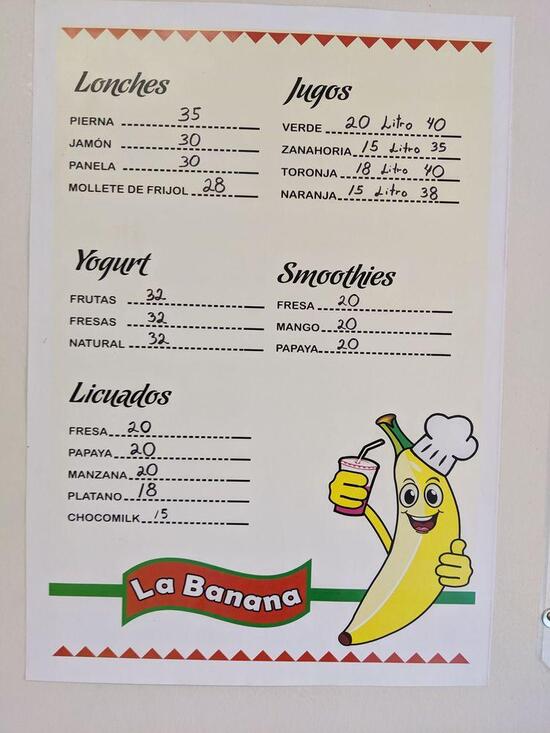 Lonches
PIERNA 35
JAMÓN 30
PANELA 30
MOLLETE DE FRIJOL 28
Jugos
VERDE 20 Litro 40
ZANAHORIA 15 Litro 35
TORONJA 18 Litro 40
NARANJA 15 Litro 38
Yogurt
FRUTAS 32
FRESAS 32
NATURAL 32
Smoothies
FRESA 20
MANGO 20
PAPAYA 20
Licuados
FRESA 20
PAPAYA 20
MANZANA 20
PLATANO 18
CHOCOMILK 15
La Banana